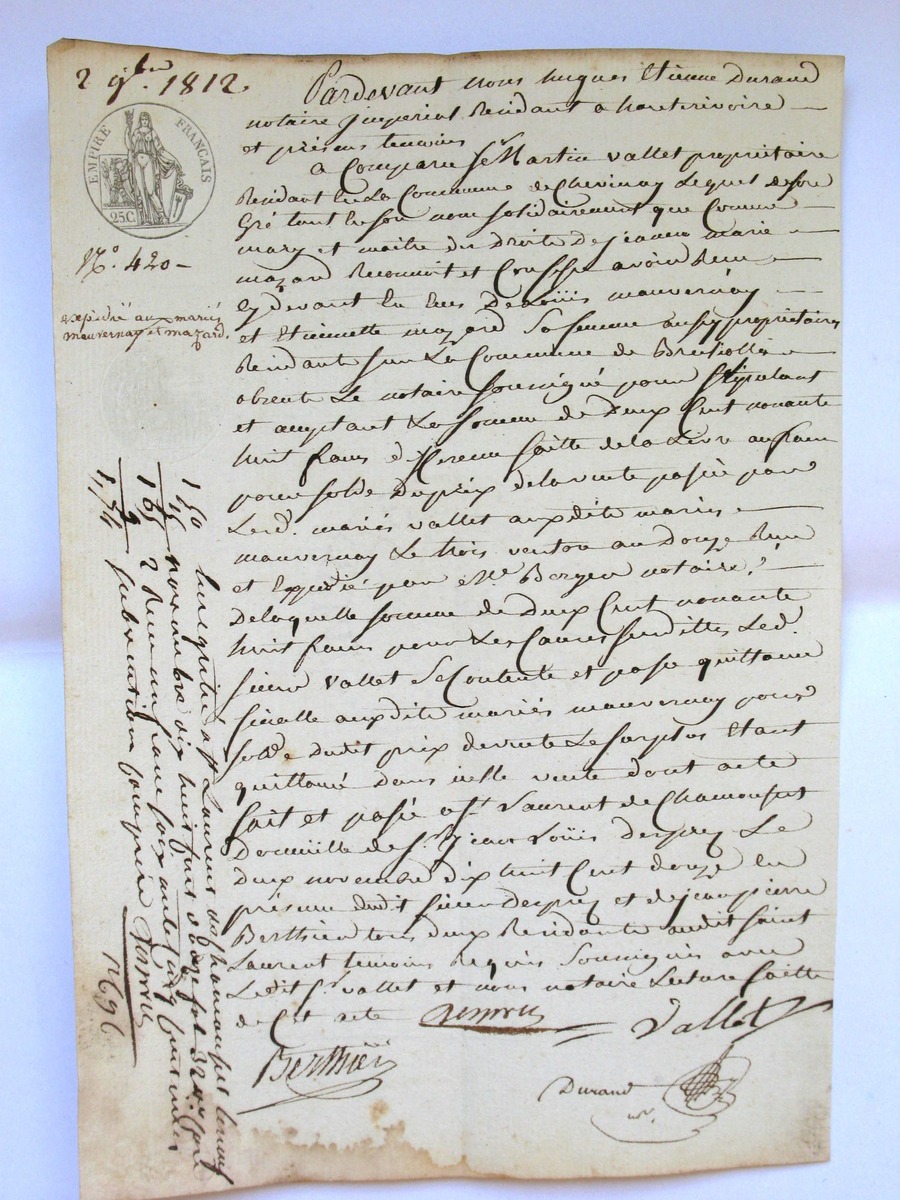 2 9bre. 1812.
EMPIRE FRANÇAIS
25C
N°. 420 –
expédié aux mariés
mauvernay et mazard.
Pardevant nous hugues Etienne Durand
notaire Imperial Residant a hauterivoire
et présens temoins
a Comparu Sr. Martin vallet propriétaire
Residant en La Commune de Chevinay Lequel de son
Gré tant en son nom solidairement que Comme
mary et maitre des Droits De jeanne marie
mazard Reconnoit et Confesse avoir Recu
Cy devant en Ecus De Loüis mauvernay
et Etiennette mazard Sa femme aussy propriétaires
Residant sur La Commune de
absents Le notaire soussigné pour Stipulant
et acceptant La Somme de Deux Cent nonante
huit francs difference faitte de la Livre au franc
pour solde Du prix de la vente passée par
Lesd. mariés vallet auxdits mariés
mauvernay Le trois ventose an Douze Recu
et Expedié par Me. notaire
De laquelle somme de Deux Cent nonante
huit francs pour Les Causes Susdittes Led.
sieur vallet Se Contente et passe quittance
finalle auxdits mariés mauvernay pour
solde dudit prix de vente Le surplus Etant
quittancé Dans icelle vente dont acte
fait et passé a St. Laurent de Chamousset
Domicille de Sr. jean Loüis Desprez Le
Deux novembre Dix huit Cent douze en
présence dudit sieur Desprez et de jean pierre
Berthier tous deux Residants audit Saint
Laurent temoins Requis Soussignés avec
Ledit Sr. vallet et nous notaire Lecture faitte
de Cet acte
Vallet
Berthier
Durand
not.
Enregistré a St. Laurent de chamousset le neuf
novembre dix huit cent douze fol. 32
Recu un franc soixante cinq centimes
subvention comprise
1 50
15
1 65
9
1,74